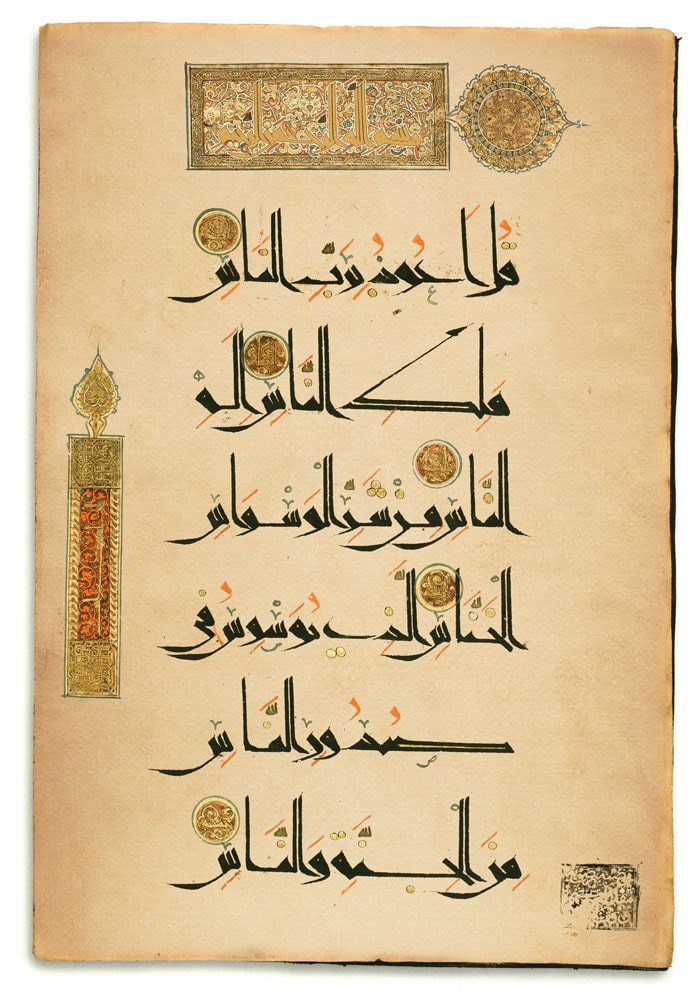 قُلْ اَعُوذُ بِرَبِّ النَّاسِ
مَلِكِ النَّاسِ اِلٰهِ
النَّاسِ مِنْ شَرِّ الْوَسْوَاسِ
الْخَنَّاسِ الَّذِي يُوَسْوِسُ فِي
صُدُورِ النَّاسِ
مِنَ الْجِنَّةِ وَالنَّاسِ